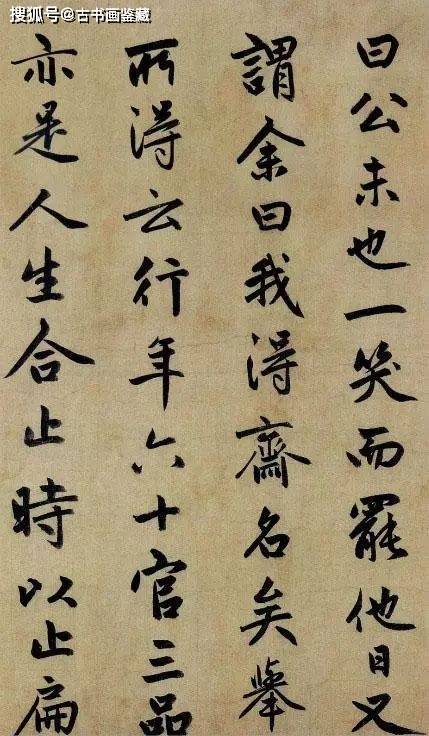 搜狐号@古书画鉴藏
曰公未也一笑而罷他日又
謂余曰我得齋名矣舉
所得云行年六十官三品
亦是人生合止時以止扁